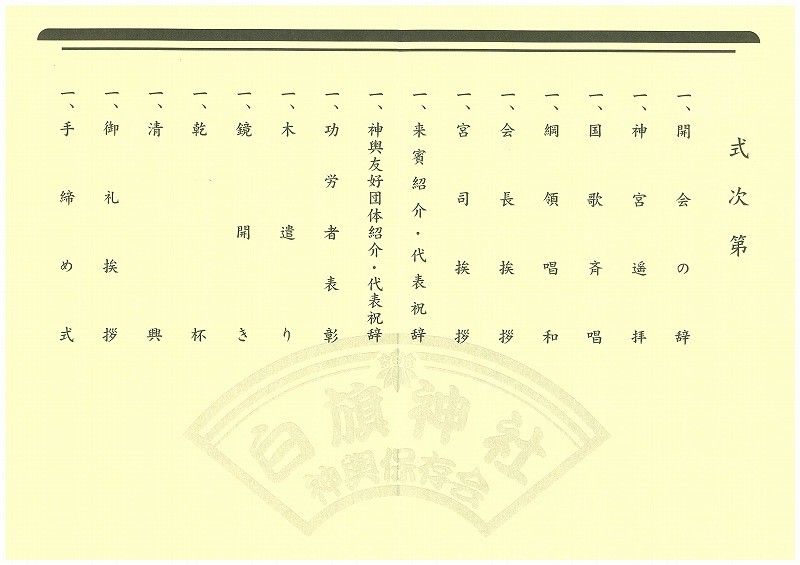 式次第
一、開会の辞
一、神宮遥拝
一、国歌斉唱
一、綱領唱和
一、会長挨拶
一、宮司挨拶
一、来賓紹介・代表祝辞
一、神輿友好団体紹介・代表祝辞
一、功労者表彰
一、木遣り
一、鏡開き
一、乾杯
一、清興
一、御礼挨拶
一、手締め式
白旗神社
神輿保存会